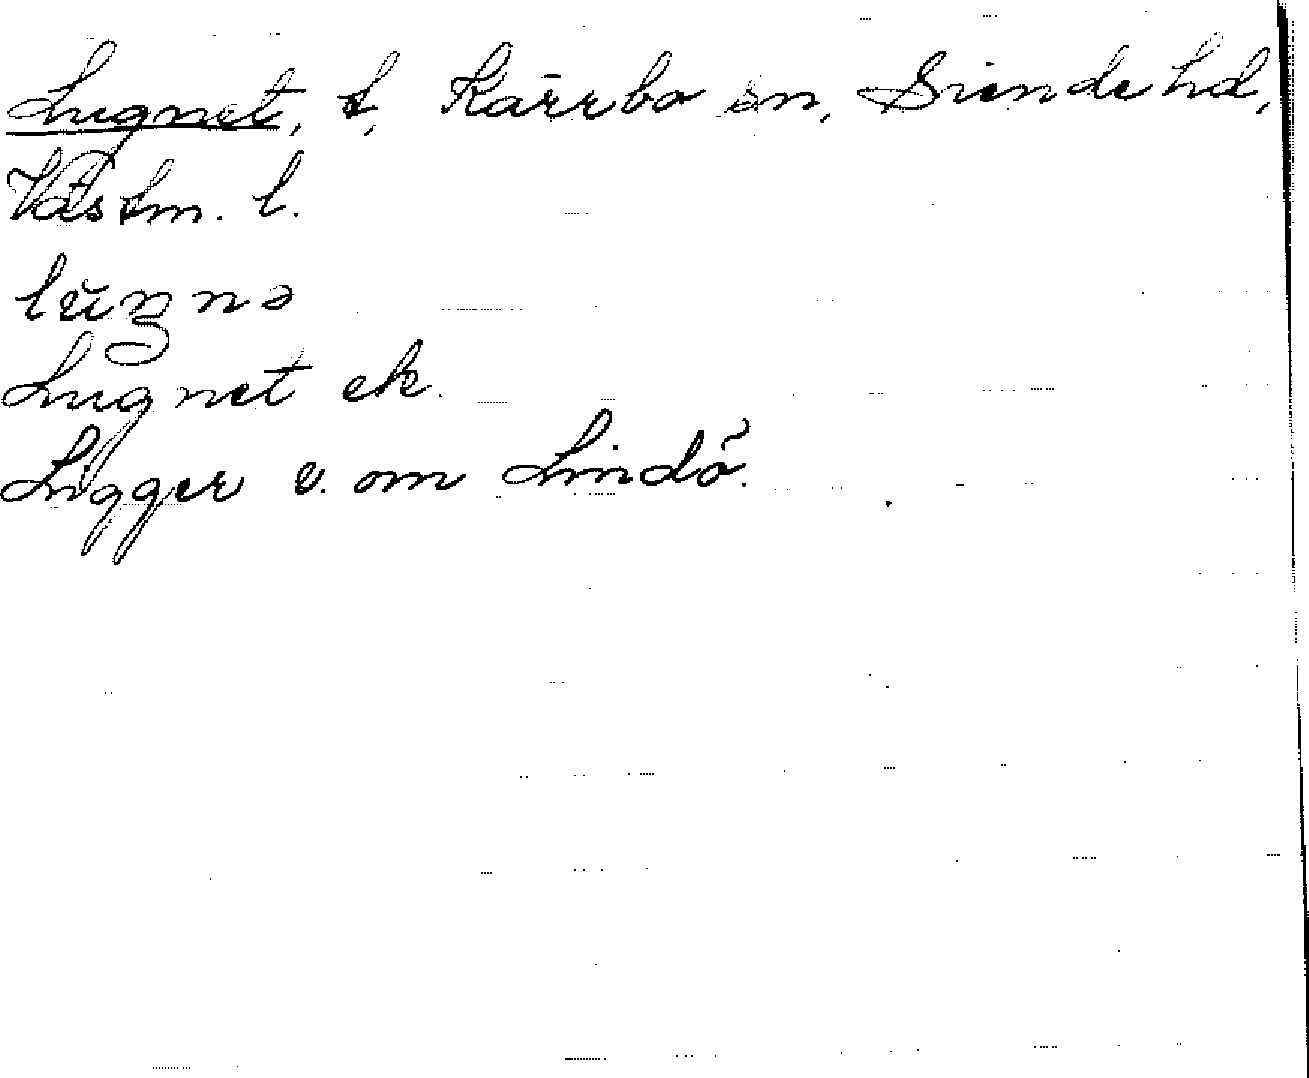 Lugnet, t, Kärrbo sn, Siende hd,
Västm. l.
lŭŋnə
Lugnet ek.
Ligger v. om Lindö.